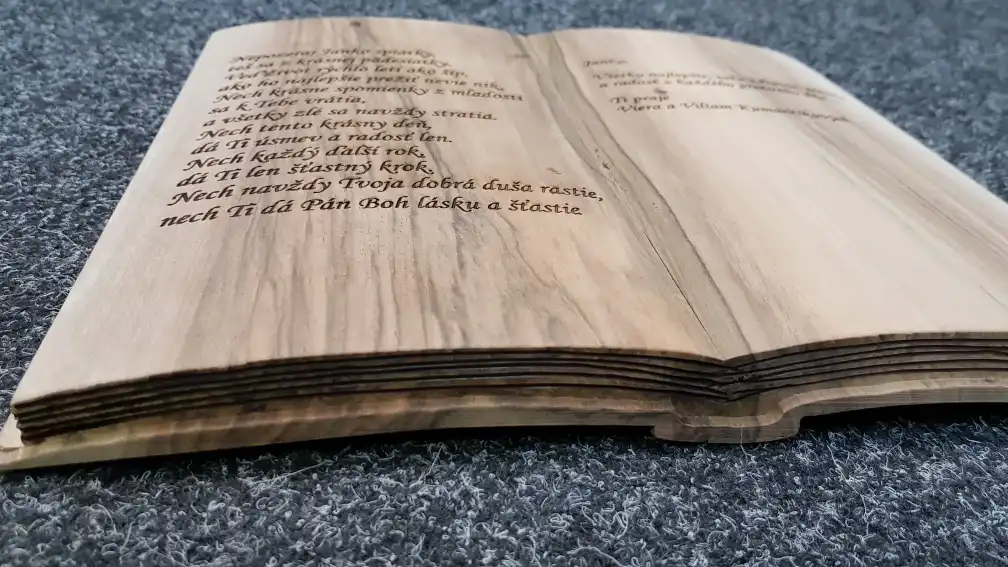 Nepozeraj Janko spiatky,
veď sa z krásnej päťdesiatky.
Veď život rýchlo letí ako šíp,
ako ho najlepšie prežiť nevie nik,
Nech krásne spomienky z mladosti
sa k Tebe vrátia,
a všetky zlé sa navždy stratia.
Nech tento krásny deň,
dá Ti úsmev a radosť len.
Nech každý ďalší rok,
dá Ti len šťastný krok,
Nech navždy Tvoja dobrá duša rastie,
nech Ti dá Pán Boh lásku a šťastie
Janko,
Všetko najlepšie,
a radosť z každého
Ti praje
Viera a Viliam